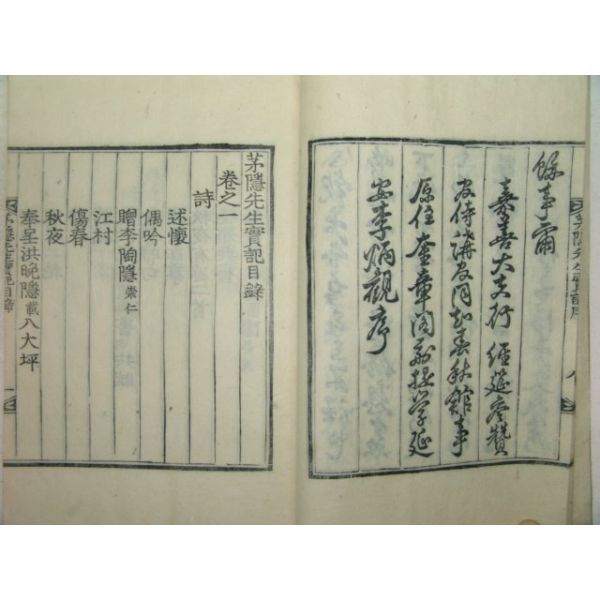 餘事爾
嘉善大夫行 經筵參贊
官侍講官同知春秋館事
原任奎章閣副提學延
安李炳觀序
茅隱先生實記目錄
卷之一
詩
述懷
偶吟
贈李陶隱崇仁
江村
傷春
秋夜
奉呈洪晩隱載八大坪
茅隱先生實記目錄
一